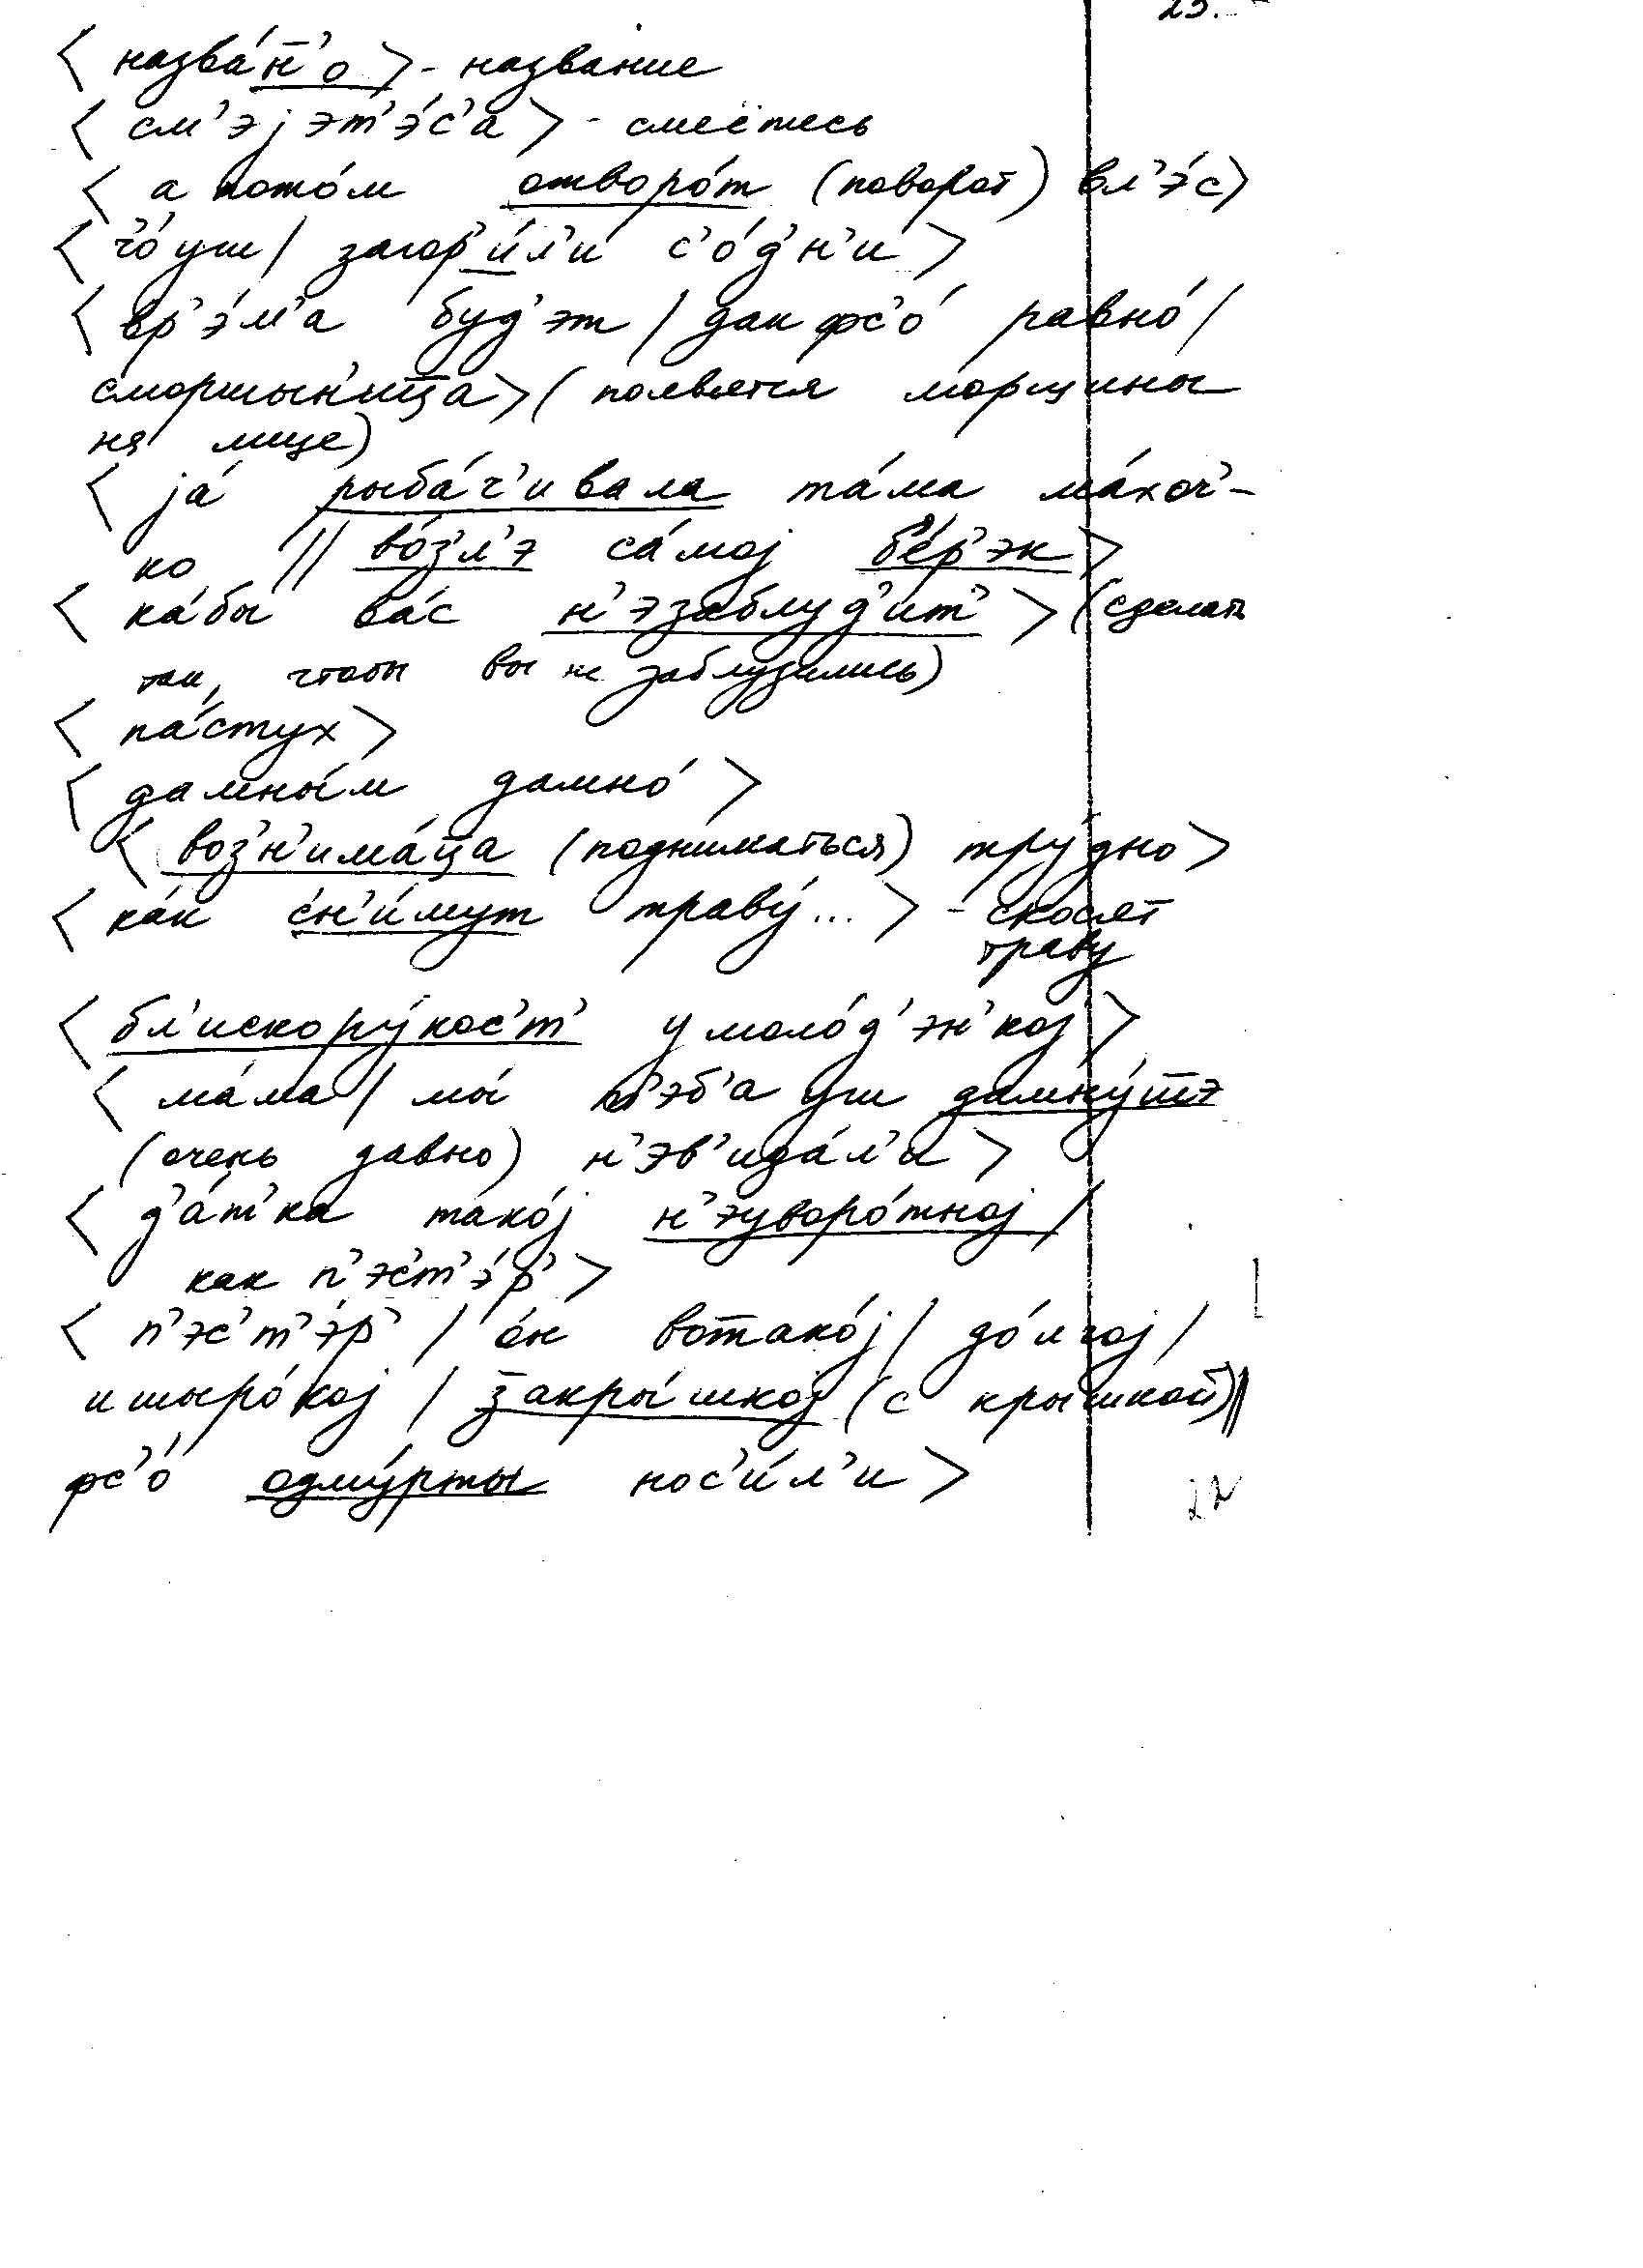 23.
< назва́н̄’о > - название
< см’эjэт’э́с’а > - смеётесь
< а пото́м отворо́т (поворот) вл’э́с >
< ч’о́ уш / загор’и́л’и с’о́д’н’и >
< вр’э́м’а буд’эт / дак фс’о́ равно́ /
сморшын’иц̄а > ( появятся морщины
на лице)
< jа́ рыба́ч’ивала та́ма ма́хоч’-
ко // во́з’л’э са́мој б’е́р’эк >
< ка́бы ва́с н’эзаблуд’ит’ > (сделать
так, чтобы вы не заблудились)
< па́стух >
< дамны́м дамно́ >
< воз’н’има́ц̄а (подниматься) тру́дно >
< ка́к с’н’и́мут траву́... > - скосят
траву
< бл’искору́кос’т’ у моло́д’эн’кој >
< ма́ма / мы́ т’эб’а уш дамну́т̄э
(очень давно) н’эв’ида́л’и >
< д’а́т’ка тако́ј н’эуворо́тной /
как п’эс’т’э́р’ >
< п’эс’т’э́р’ / о́н вот̄ако́ј / до́лгој /
и шыро́кој / з̄акры́шкој (с крышкой) //
фс’о́ одму́рты нос’и́л’и >